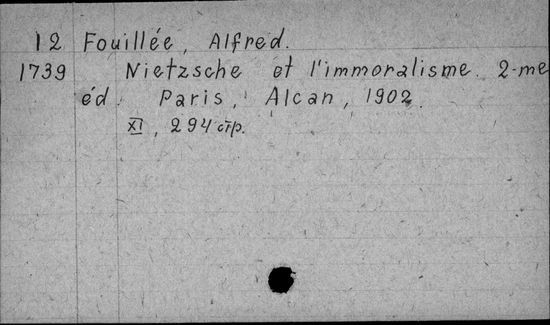 12 Fouillée, Alfred.
1739 Nietzsche et l'immoralisme. 2-me
éd. Paris, Alcan, 1902.
XI, 294 стр.